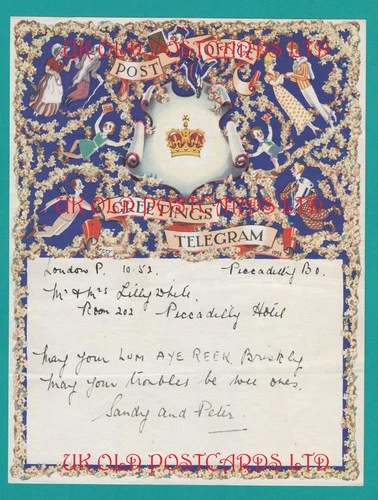 UK OLD POSTCARDS LTD
POST OFFICE
UK OLD POSTCARDS LTD
GREETINGS
TELEGRAM
London P. 10.52. Piccadilly Bo.
Mr & Mrs Lilly White.
Room 202 Piccadilly Hotel
May your LUM AYE REEK Briskly
May your troubles be wee ones.
Sandy and Peter.
UK OLD POSTCARDS LTD